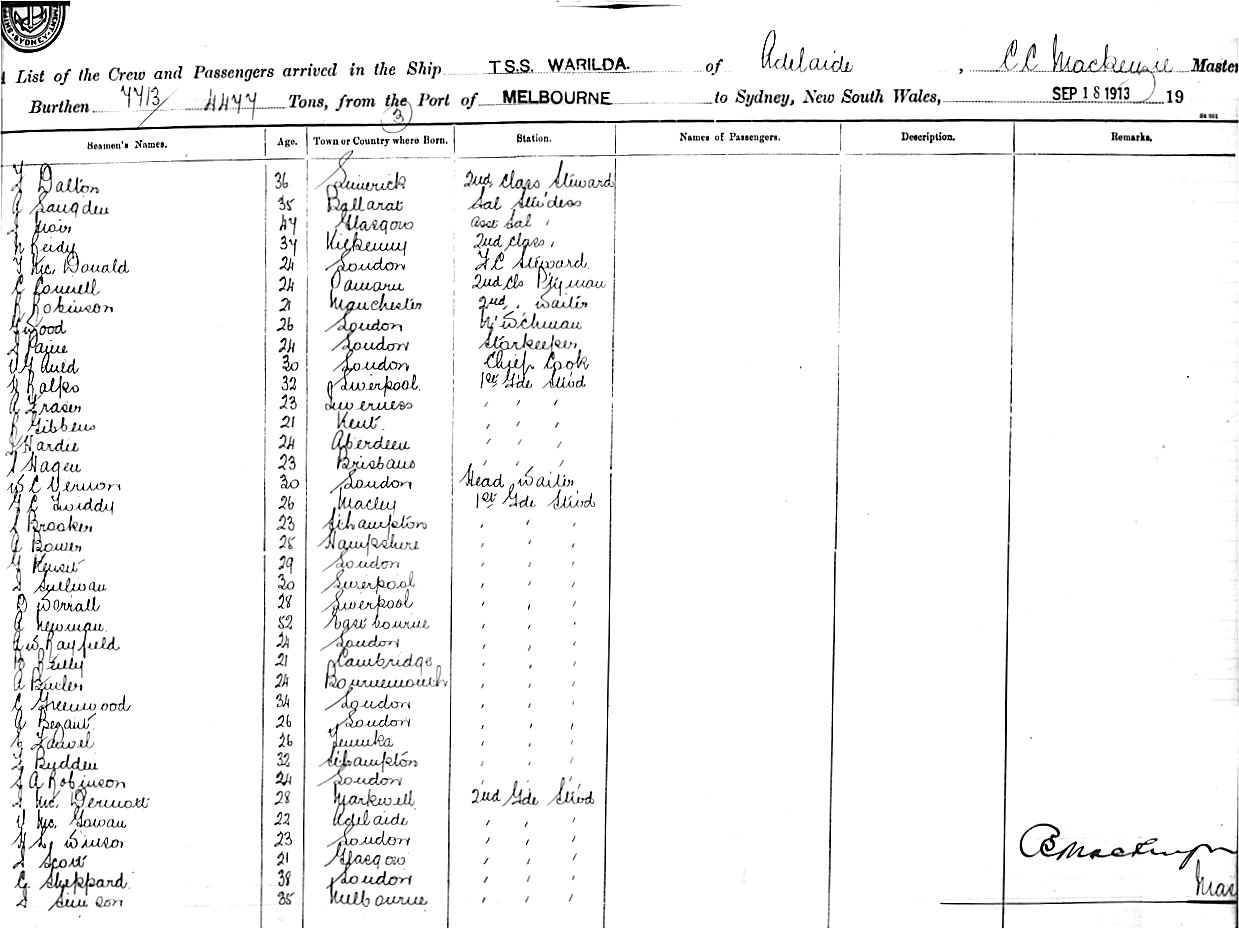 List of the Crew and Passengers arrived in the Ship T.S.S. WARILDA. of Adelaide, C C Mackenzie Master
Burthen 7713/4477 Tons, from the Port of MELBOURNE to Sydney, New South Wales, SEP 18 1913 19
3
Seamen's Names. Age. Town or Country where Born. Station. Names of Passengers. Description. Remarks.
Dalton 36 Limerick 2nd Class Steward
Sangden 35 Ballarat Sal Stewdess
47 Glasgow asst Sal "
Reidy 37 Kilkenny 2nd Class "
Mc. Donald 24 London Steward
C Connell 24 Oamaru 2nd Cls P'tyman
R Robinson 21 Manchester 2nd " Waiter
G Wood 26 London N' W'chman
Paine 24 London Storkeeper
Auld 30 London Chief Cook
Ralps 32 Liverpool 1st Gde Stwd
A Fraser 23 Inverness " " "
Gibbens 21 Kent " " "
Hardie 24 Aberdeen " " "
Hagen 23 Brisbane " " "
W C Vernon 30 London Head Waiter
Twiddy 26 Macley 1st Gde Stwd
Brooker 23 S'hampton " " "
A Bower 25 Hampshire " " "
29 London " " "
Sullivan 30 Liverpool " " "
Worrall 28 Liverpool " " "
A Newman 52 Eastbourne " " "
W Rayfield 24 London " " "
Reilly 21 Cambridge " " "
A Butler 24 Bournemouth " " "
C Greenwood 34 London " " "
A Bezant 26 London " " "
26 Temuka " " "
Bydden 32 S'hampton " " "
A Robinson 24 London " " "
Mc. Dermott 28 Markwell 2nd Gde Stwd
Mc. Gowan 22 Adelaide " " "
Winsor 23 London " " "
Scott 21 Glasgow " " "
C Sheppard 38 London " " "
Simson 35 Melbourne " " "